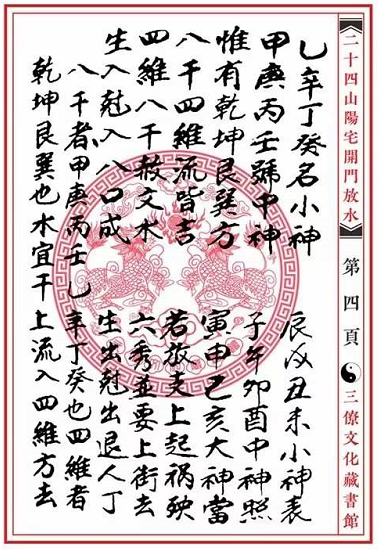 《二十四山陽宅開門放水》
第四頁
三僚文化藏書館
乙辛丁癸名小神 辰戌丑未小神表
甲庚丙壬號中神 子午卯酉中神照
惟有乾坤艮巽方 寅申巳亥大神當
八干四維流皆吉 若放支上起禍殃
四維八干救文水 六秀並要上街去
生入尅入八口成 生出尅出退人丁
八干者甲庚丙壬乙辛丁癸也四維者
乾坤艮巽也水宜干上流入四維方去